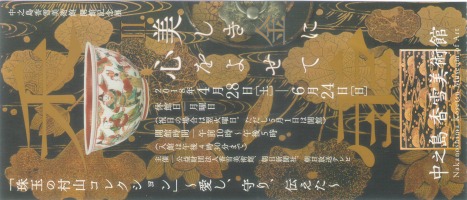 中之島香雪美術館 開館記念展
美しき に
心をよせて
2018年4月28日[土]—6月24日[日]
休館日|月曜日
(祝日の場合は翌火曜日 ただし5月1日は開館)
開館時間|午前10時〜午後5時
(入館は午後4時30分まで)
主催|公益財団法人香雪美術館 朝日新聞社 朝日放送テレビ
「珠玉の村山コレクション」〜愛し、守り、伝えた〜
中之島香雪美術館
Nakanoshima Kosetsu Museum of Art